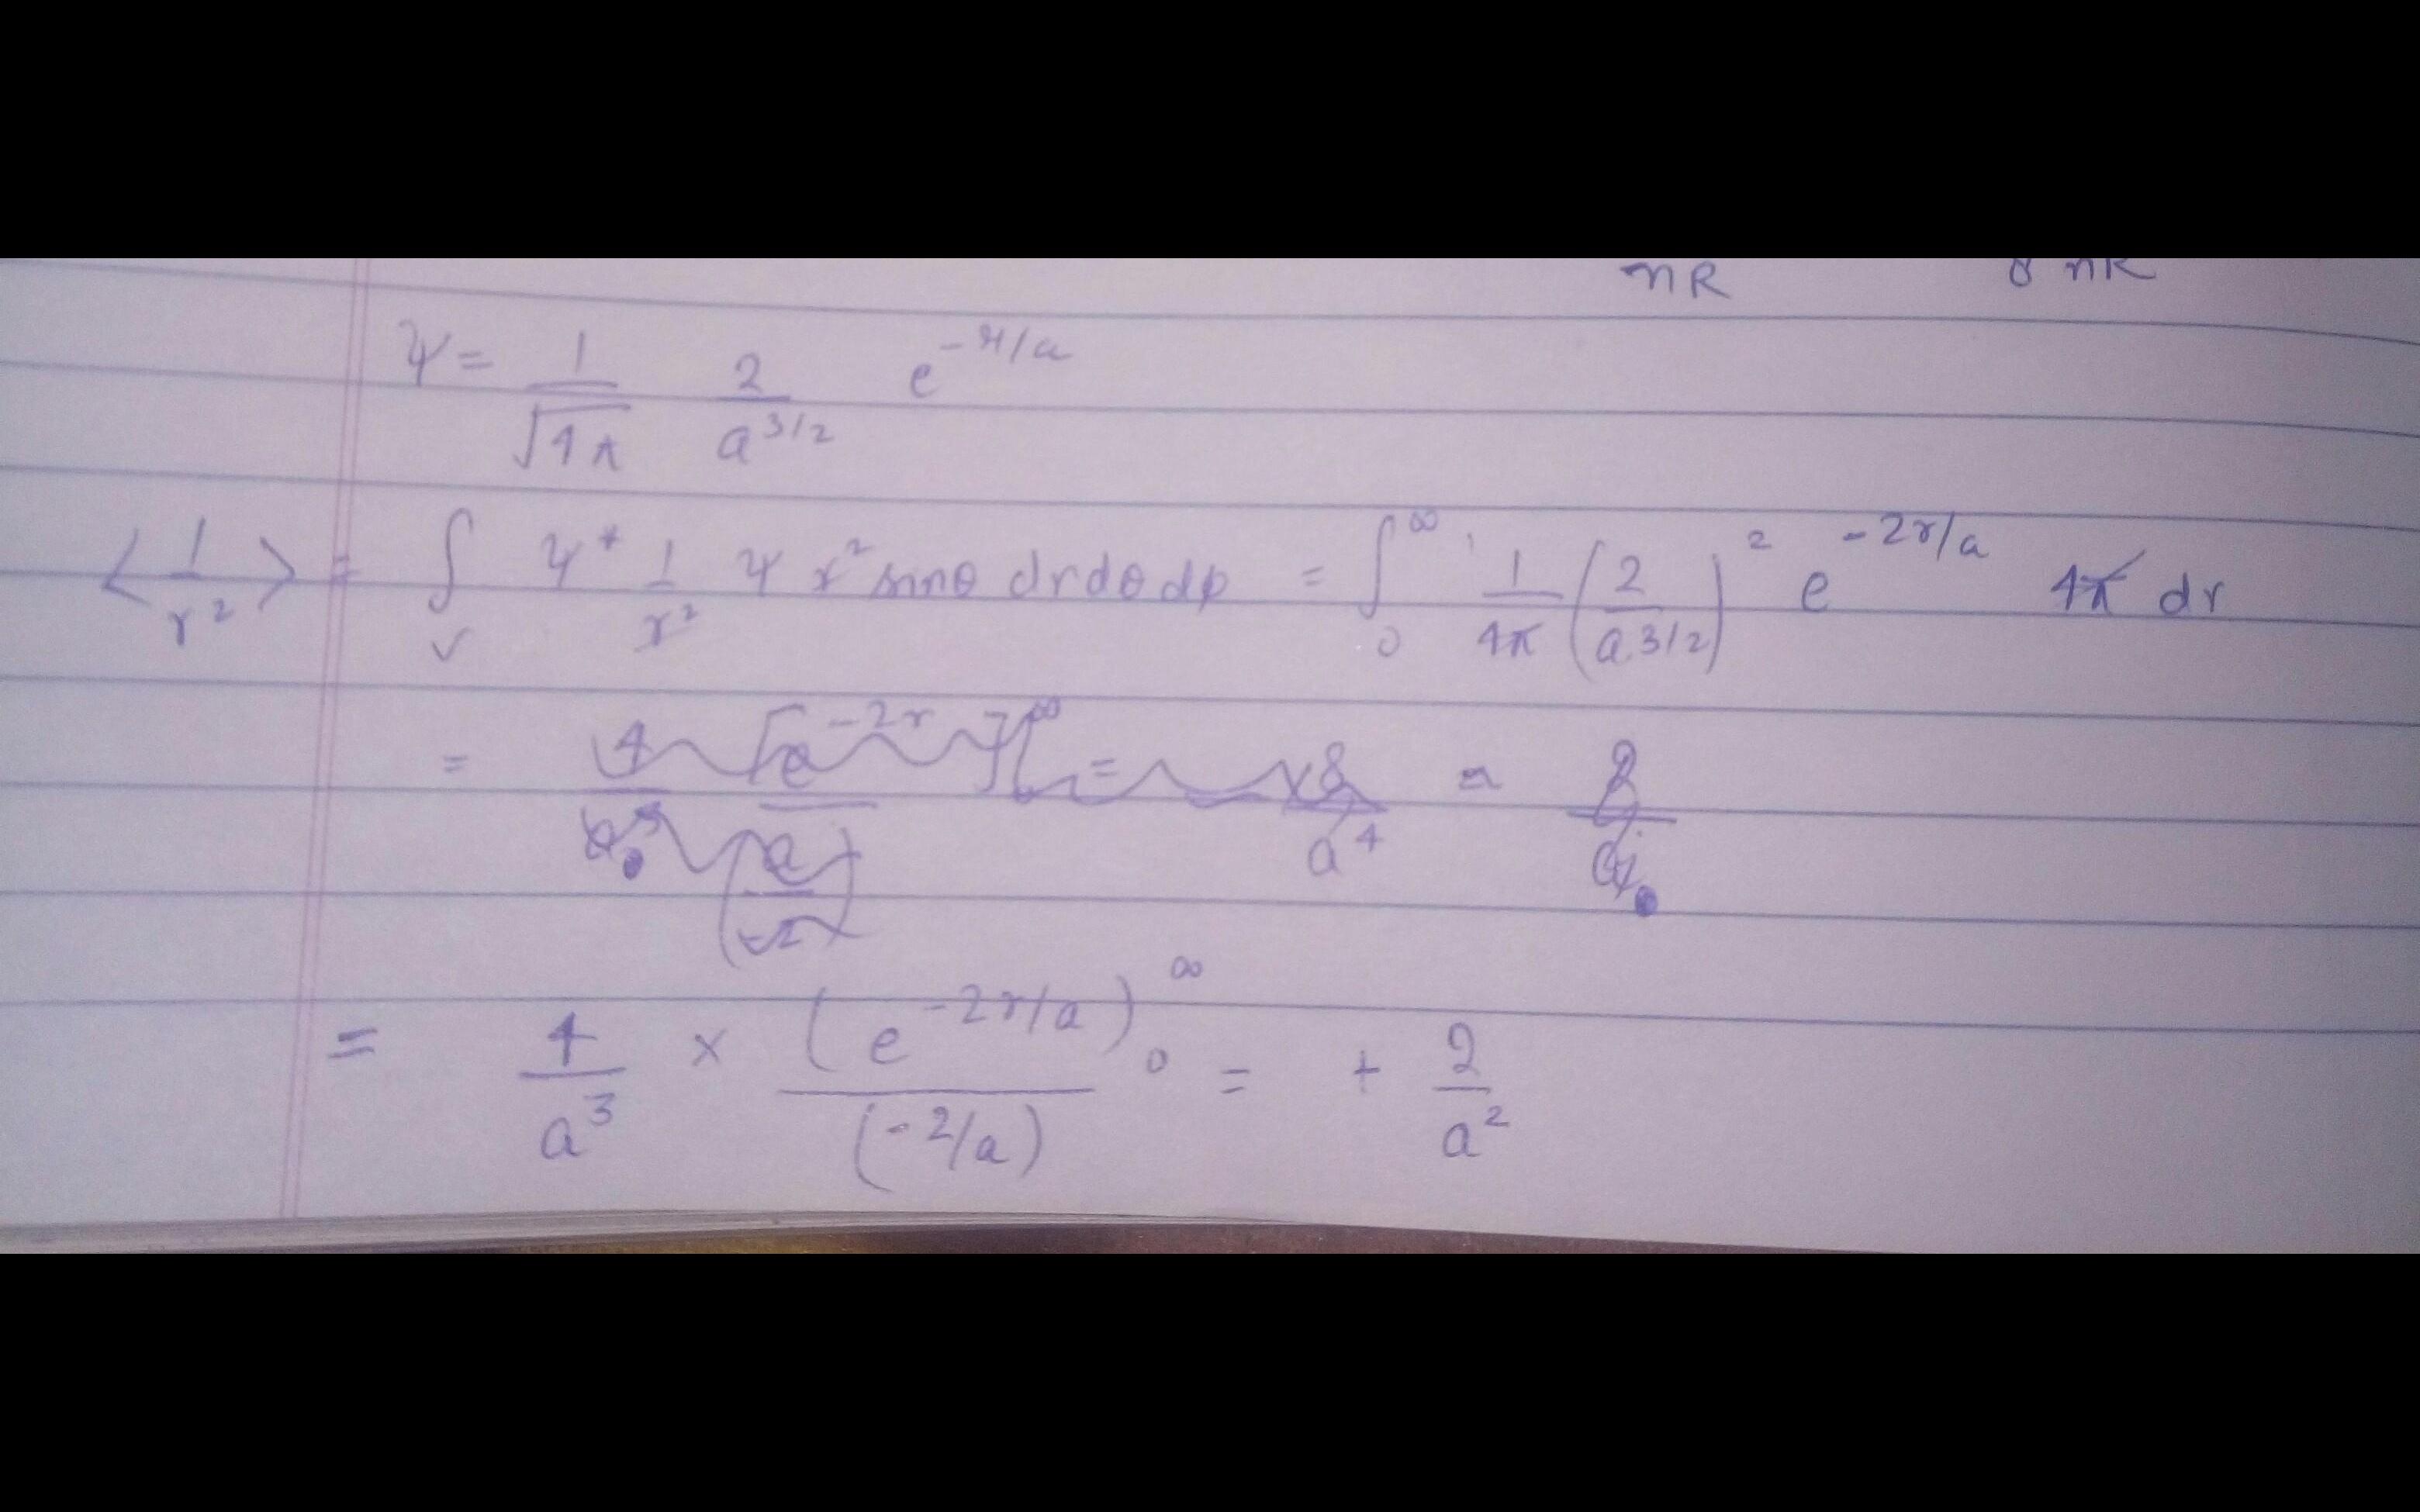 nR 8 nR
ψ = 1/√4π 2/a^3/2 e^-r/a
<1/r²> = ∫_v ψ* 1/r² ψ r² sinθ dr dθ dφ = ∫_0^∞ 1/4π (2/a^3/2)² e^-2r/a 4π dr
= 4 [e^-2r]^∞ = 8/a⁴ = 
= 4/a³ × (e^-2r/a)_0^∞/(-2/a) = + 2/a²